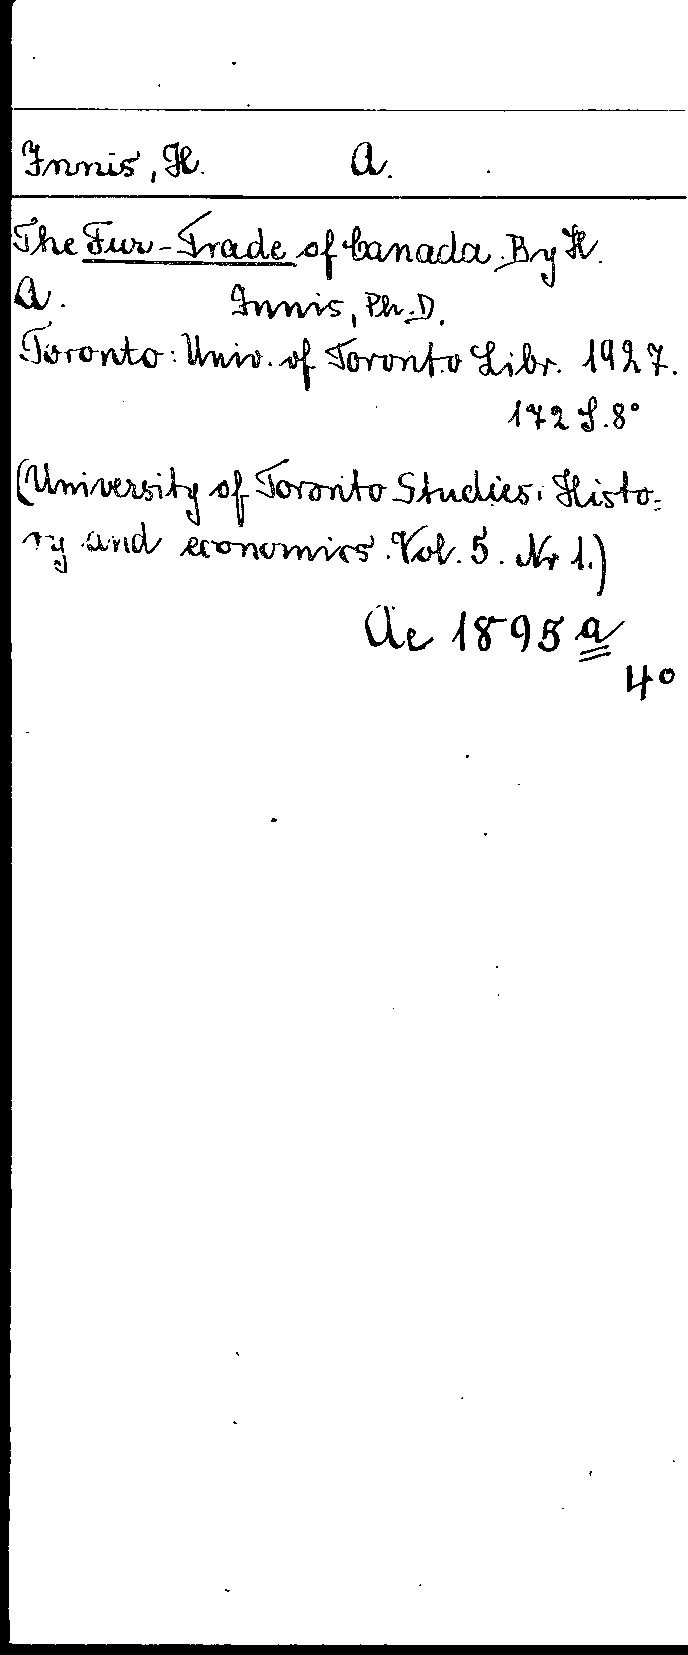 Innis, H. A.
The Fur-Trade of Canada. By H.
A. Innis, Ph.D.
Toronto: Univ. of Toronto Libr. 1927.
172 S. 8°
(University of Toronto Studies. Histo=
ry and economics. Vol. 5. Nr 1.)
Ac 1895 a
4°